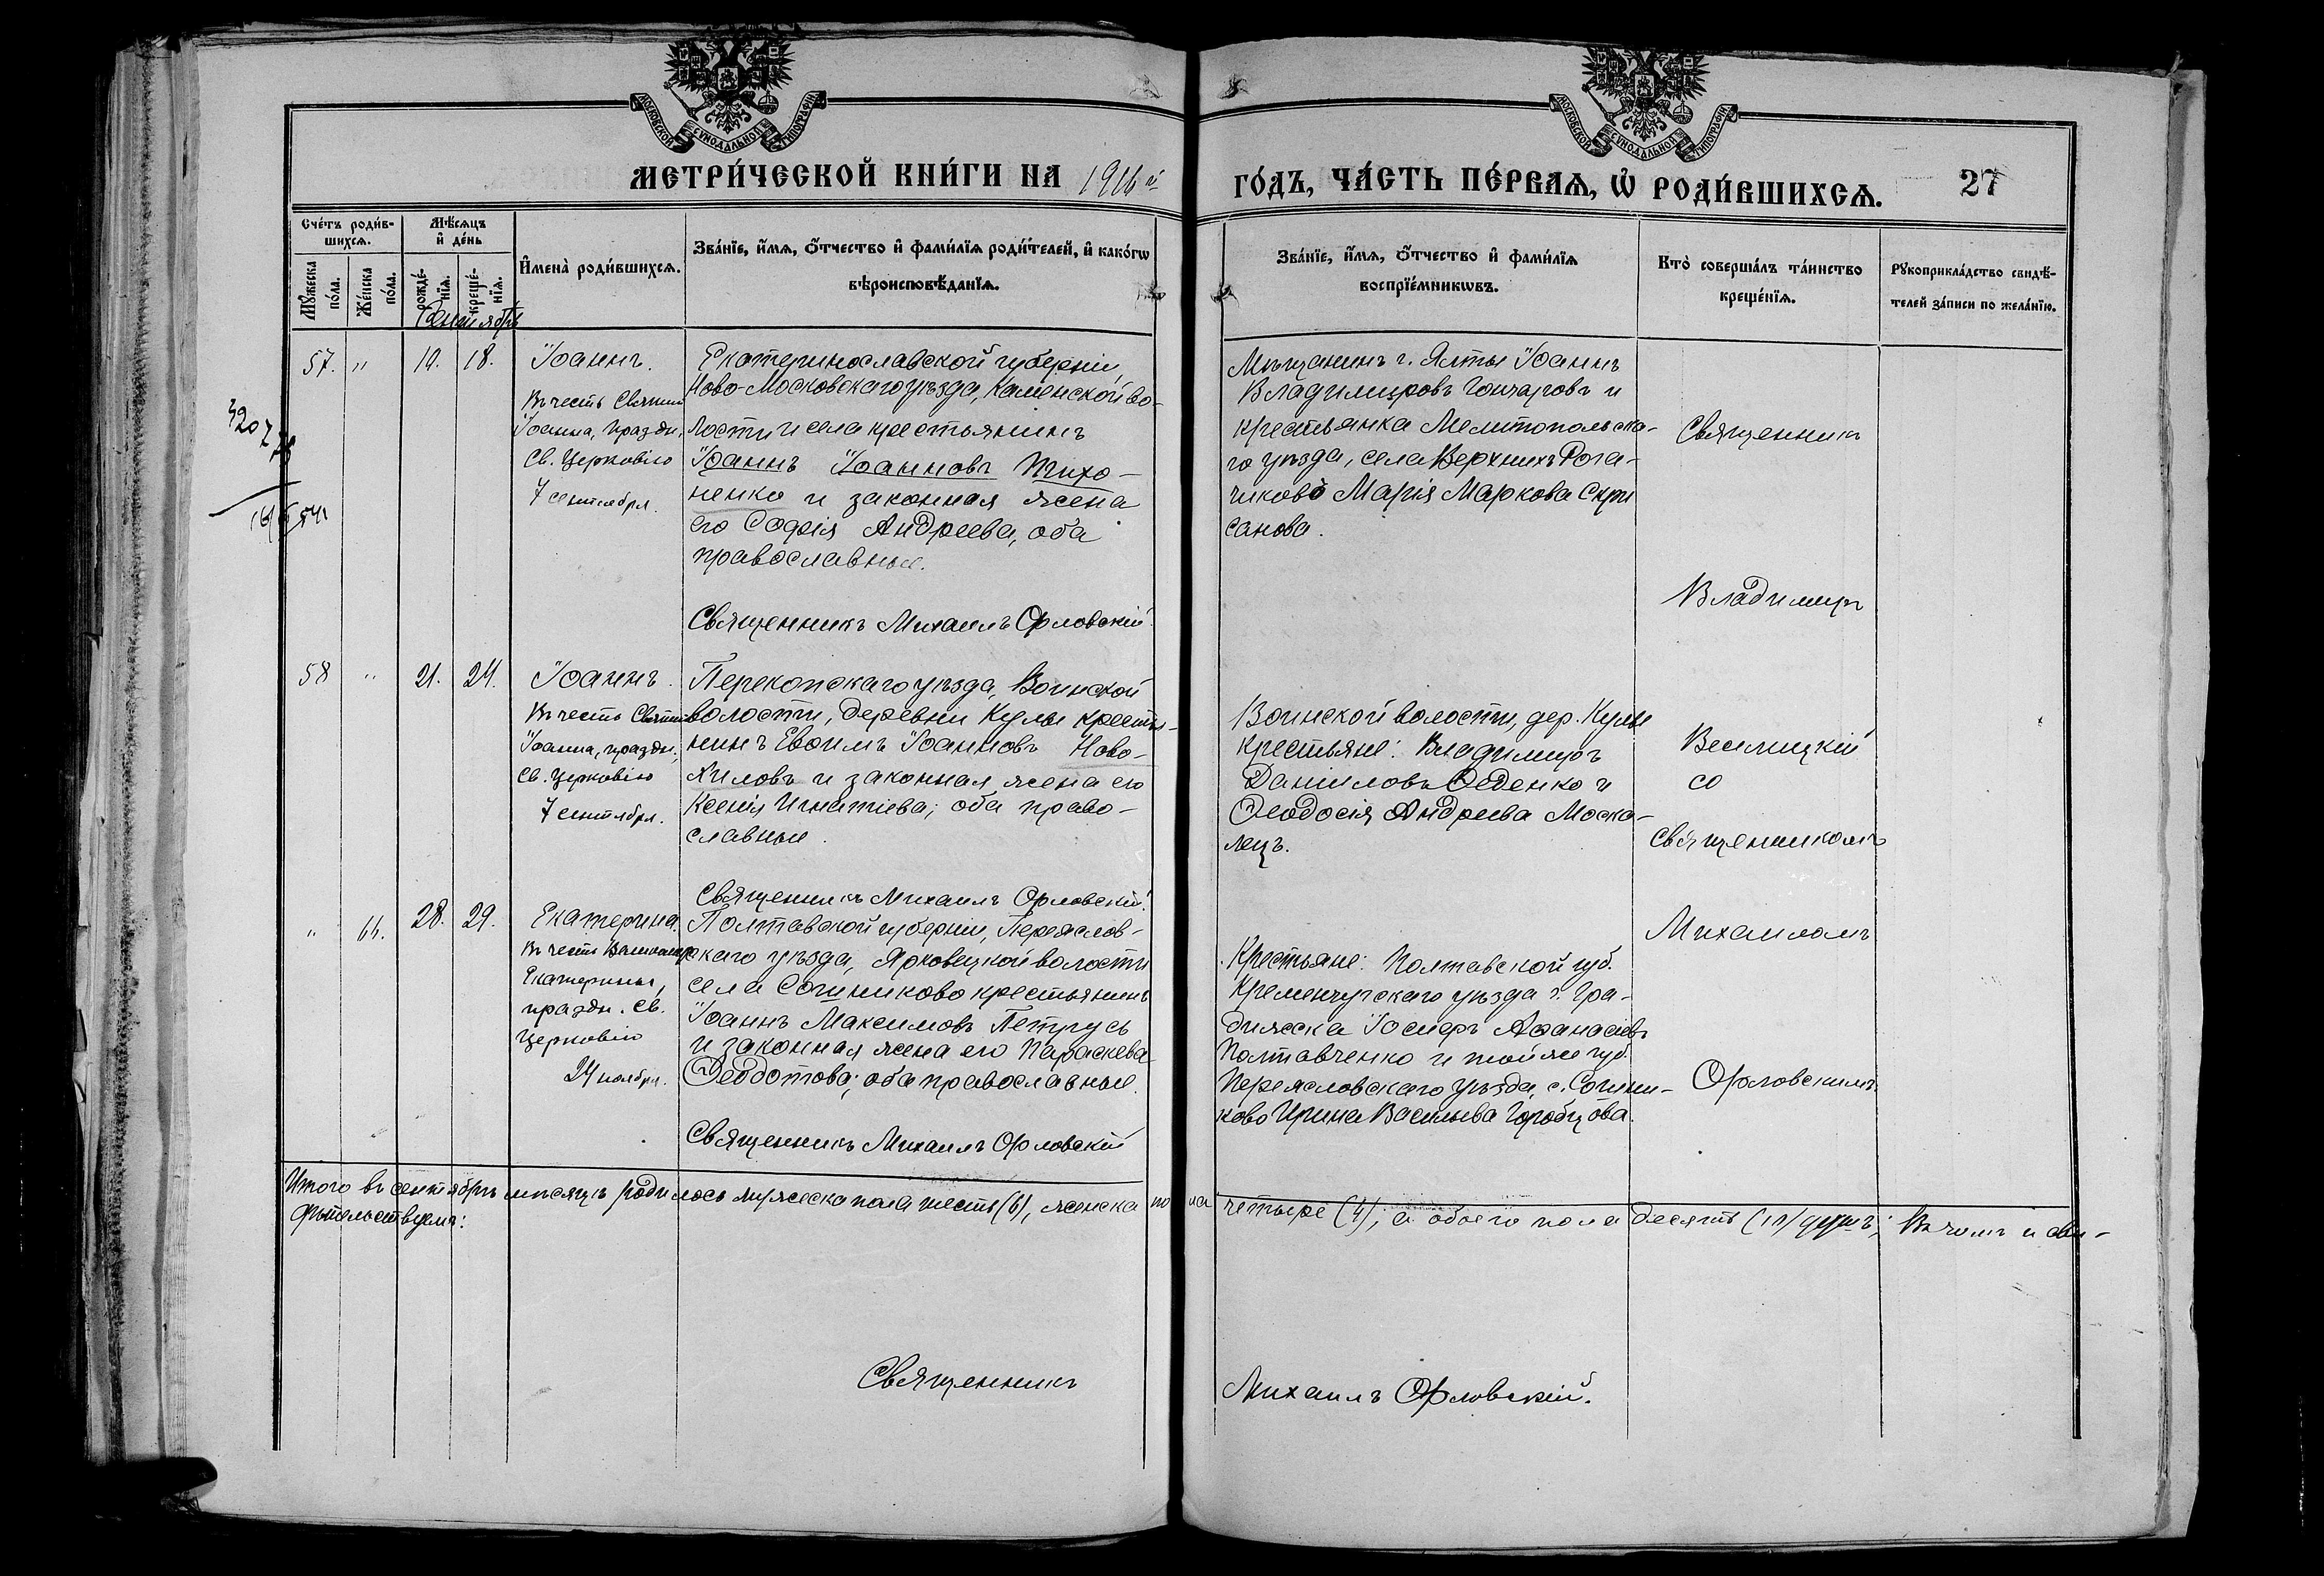 МОСКОВСКОЙ СѴНОДАЛЬНОЙ ТИПОГРАФІИ
МОСКОВСКОЙ СѴНОДАЛЬНОЙ ТИПОГРАФІИ
МЕТРИ́ЧЕСКОЙ КНИ́ГИ НА 1916 й
ГО́ДЪ, ЧА́СТЬ ПЕ́РВАЯ, Ѡ҆ РОДИ́ВШИХСЯ.
27
Сче́тъ роди́в-
шихся.
Мѣ́сяцъ
и҆ де́нь
Мꙋ́жеска
по́ла.
Же́нска
по́ла.
рожде́-
нїя.
креще́-
нїя.
И҆мена̀ роди́вшихся.
Зва́нїе, и҆́мя, ѻ҆́тчество и҆ фами́лїя роди́телей, и҆ како́гѡ
вѣроисповѣ́данїя.
Зва́нїе, и҆́мя, ѻ҆́тчество и҆ фами́лїя
воспрїе́мникѡвъ.
Кто̀ соверша́лъ та́инство
креще́нїя.
Рꙋкоприкла́дство свидѣ́-
телей за́писи по жела́нїю.
Сентябрь
57. " 18.
Іоаннъ.
Въ честь Святаго
Іоанна, праздн.
Св. Церковію
7 сентября.
Екатеринославской губерніи,
Ново-Московскаго уѣзда, Каменской во-
лости и села крестьянинъ
Іоаннъ Іоанновъ Тихо-
ненко и законная жена
его Софія Андреева, оба
православные.
Священникъ Михаилъ Орловскій
Мѣщанинъ г. Ялты Іоаннъ
Владимировъ Гончаровъ и
крестьянка Мелитопольска-
го уѣзда, села Верхнихъ Рога-
чиковъ Марія Маркова Скри
санова.
Священникъ
Владимиръ
58 " 21. 24.
Іоаннъ.
Въ честь Святаго
Іоанна, праздн.,
Св. Церковію
7 сентября.
Перекопскаго уѣзда, Воинской
волости, деревни Кулы крестья-
нинъ Евѳимъ Іоанновъ Ново-
хиловъ и законная жена его
Ксенія Игнатіева; оба право-
славные.
Священникъ Михаилъ Орловскій.
Воинской волости, дер. Кулы
крестьяне: Владимиръ
Даніиловъ Деденко и
Ѳеодосія Андреева Моска-
лецъ.
Веселицкій
со
священникомъ
" 28. 29.
Екатерина.
Въ честь Великомуч.
Екатерины,
праздн. Св.
Церковію
24 ноября.
Полтавской губерніи, Переяслов-
скаго уѣзда, Ярковецкой волости
села Сошниково крестьянинъ
Іоаннъ Максимовъ Петрусь
и законная жена его Параскева
Ѳеодотова; оба православные.
Священникъ Михаилъ Орловскій
Крестьяне: Полтавской губ.
Кременчугскаго уѣзда г. Гра-
дижска Іосифъ Аѳанасіевъ
Полтавченко и той же губ.
Переясловскаго уѣзда, с. Сошни-
ково Ирина Васильева Горобцова.
Михаиломъ
Орловскимъ
Итого въ сентябрѣ мѣсяцѣ родилось мужеска пола шесть (6), женска пола четыре (4), а обоего пола десять (10) душъ; Въ чемъ и сви-
дѣтельствуемъ:
Священникъ Михаилъ Орловскій.